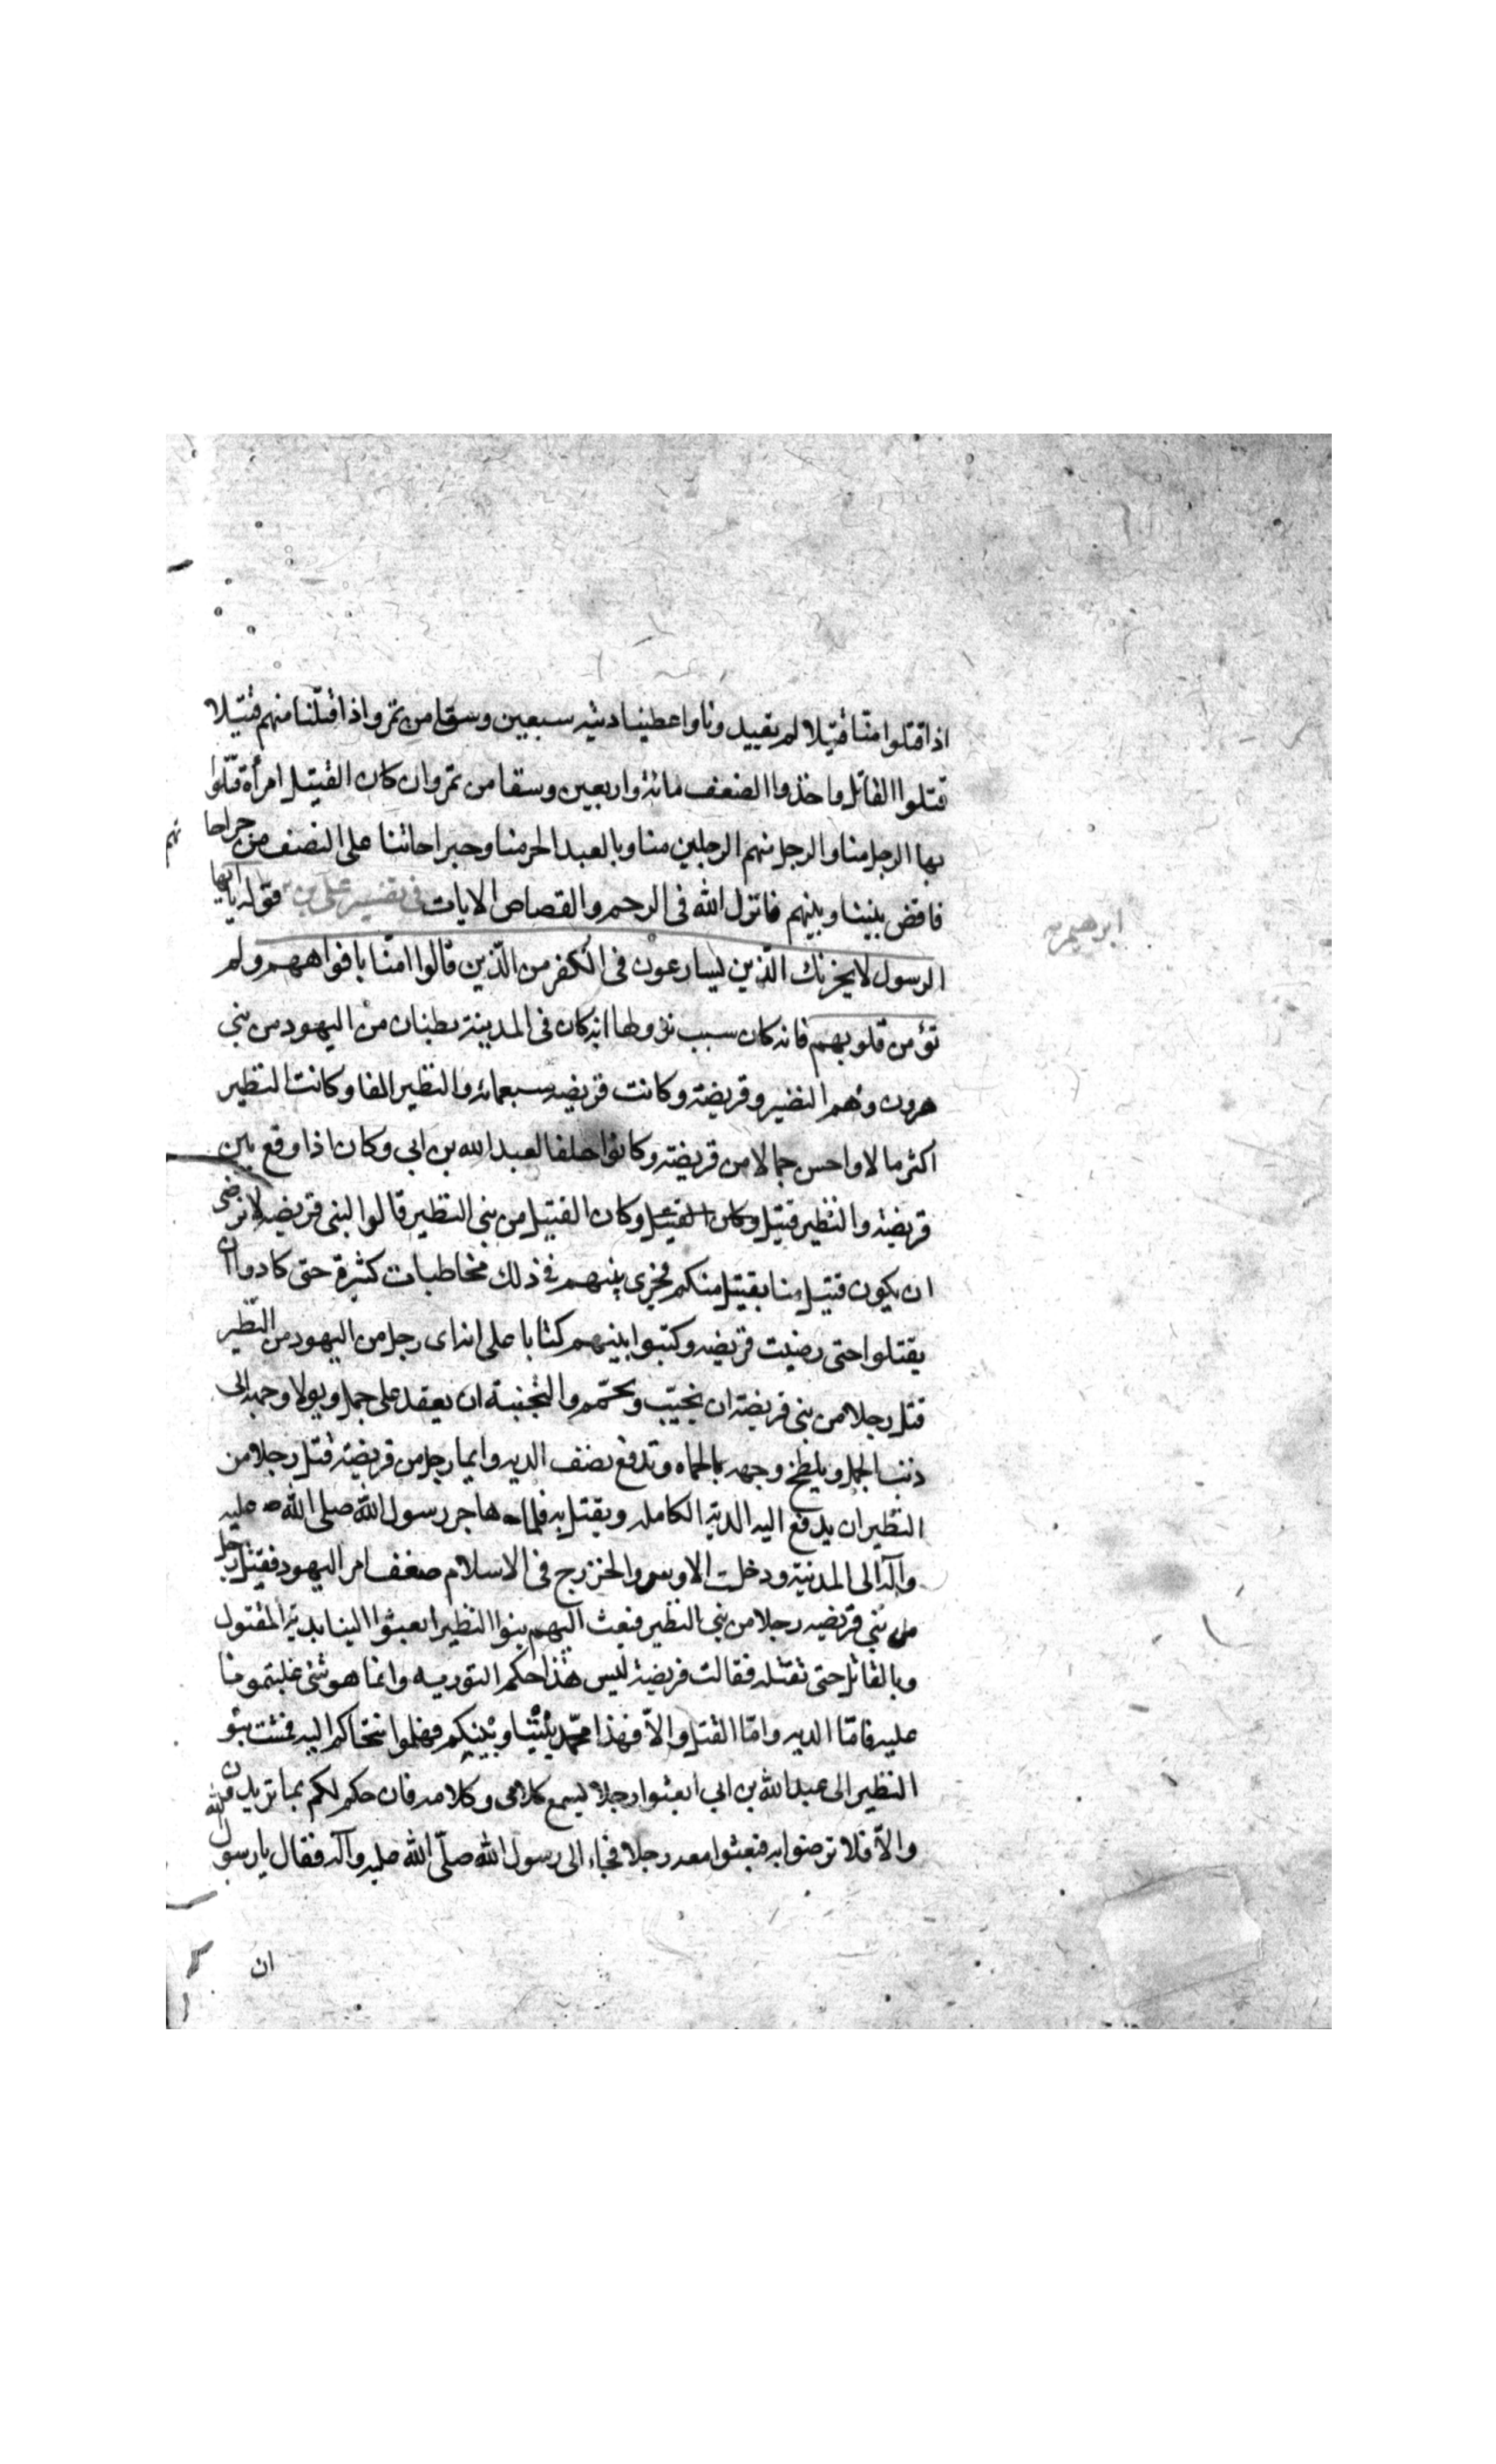 اذا قتلوا منّا قتيلا لم يقيدونا واعطينا ديته سبعين وسقا من تمر واذا قتلنا منهم قتيلا
قتلوا القاتل واخذوا الضعف مائة واربعين وسقا من تمر وان كان القتيل امرأة قتلوا
بها الرجل منا والرجل منهم الرجلين منا وبالعبد الحر منا وجراحاتنا على النصف من جراحا
تهم
فاقض بيننا وبينهم فانزل الله فى الرجم والقصاص الايات فى تفسير على بن قوله يا ايها
ابرهيم
الرسول لا يحزنك الّذين يسارعون فى الكفر من الّذين قالوا امنّا بافواههم ولم
تؤمن قلوبهم فانه كان سبب نزولها انه كان فى المدينة بطنان من اليهود من بنى
هرون وهم النضير وقريضة وكانت قريضه سبعمائه والنظير الفا وكانت النظير
اكثر مالا واحسن حالا من قريضة وكانوا حلفا لعبد الله بن ابى وكان اذا وقع بين
قريضة والنظير قتيل وكان القتيل وكان القتيل من بنى النظير قالوا لبنى قريضه لا نرضى
ان يكون قتيل منا بقتيل منكم فجرى بينهم فى ذلك مخاطبات كثيرة حتى كادوا ان
يقتلوا حتى رضيت قريضه وكتبوا بينهم كتابا على انه اى رجل من اليهود من النظير
قتل رجلا من بنى قريضة ان يجنّب ويحمّم والتجنبة ان يقعد على جمل ويولا وجهه الى
ذنب الجمل ويلطخ وجهه بالحماه وتدفع نصف الديه وايما رجل من قريضة قتل رجلا من
النظير ان يدفع اليه الدية الكامله ويقتل به فلما هاجر رسول الله صلى الله عليه
وآله الى المدنية ودخلت الاوس والخزرج فى الاسلام ضعف امر اليهود فقتل رجل
من بنى قريضه رجلا من بنى النظير فبعث اليهم بنوا النظير ابعثوا الينا بدية المقتول
وبالقاتل حتى نقتله فقالت قريضة ليس هذا حكم التورية وانما هو شئ غلبتمونا
عليه فامّا الديه وامّا القتل والاّ فهذا محمّد بيننا وبينكم فهلموا نتحاكم اليه فمشت بنو
النظير الى عبد الله بن ابى ابعثوا رجلا يسمع كلامى وكلامه فان حكم لكم بما تريدون
والاّ فلا ترضوا به فبعثوا معه رجلا فجاء الى رسول الله صلّى الله عليه وآله فقال يا رسول الله
ان